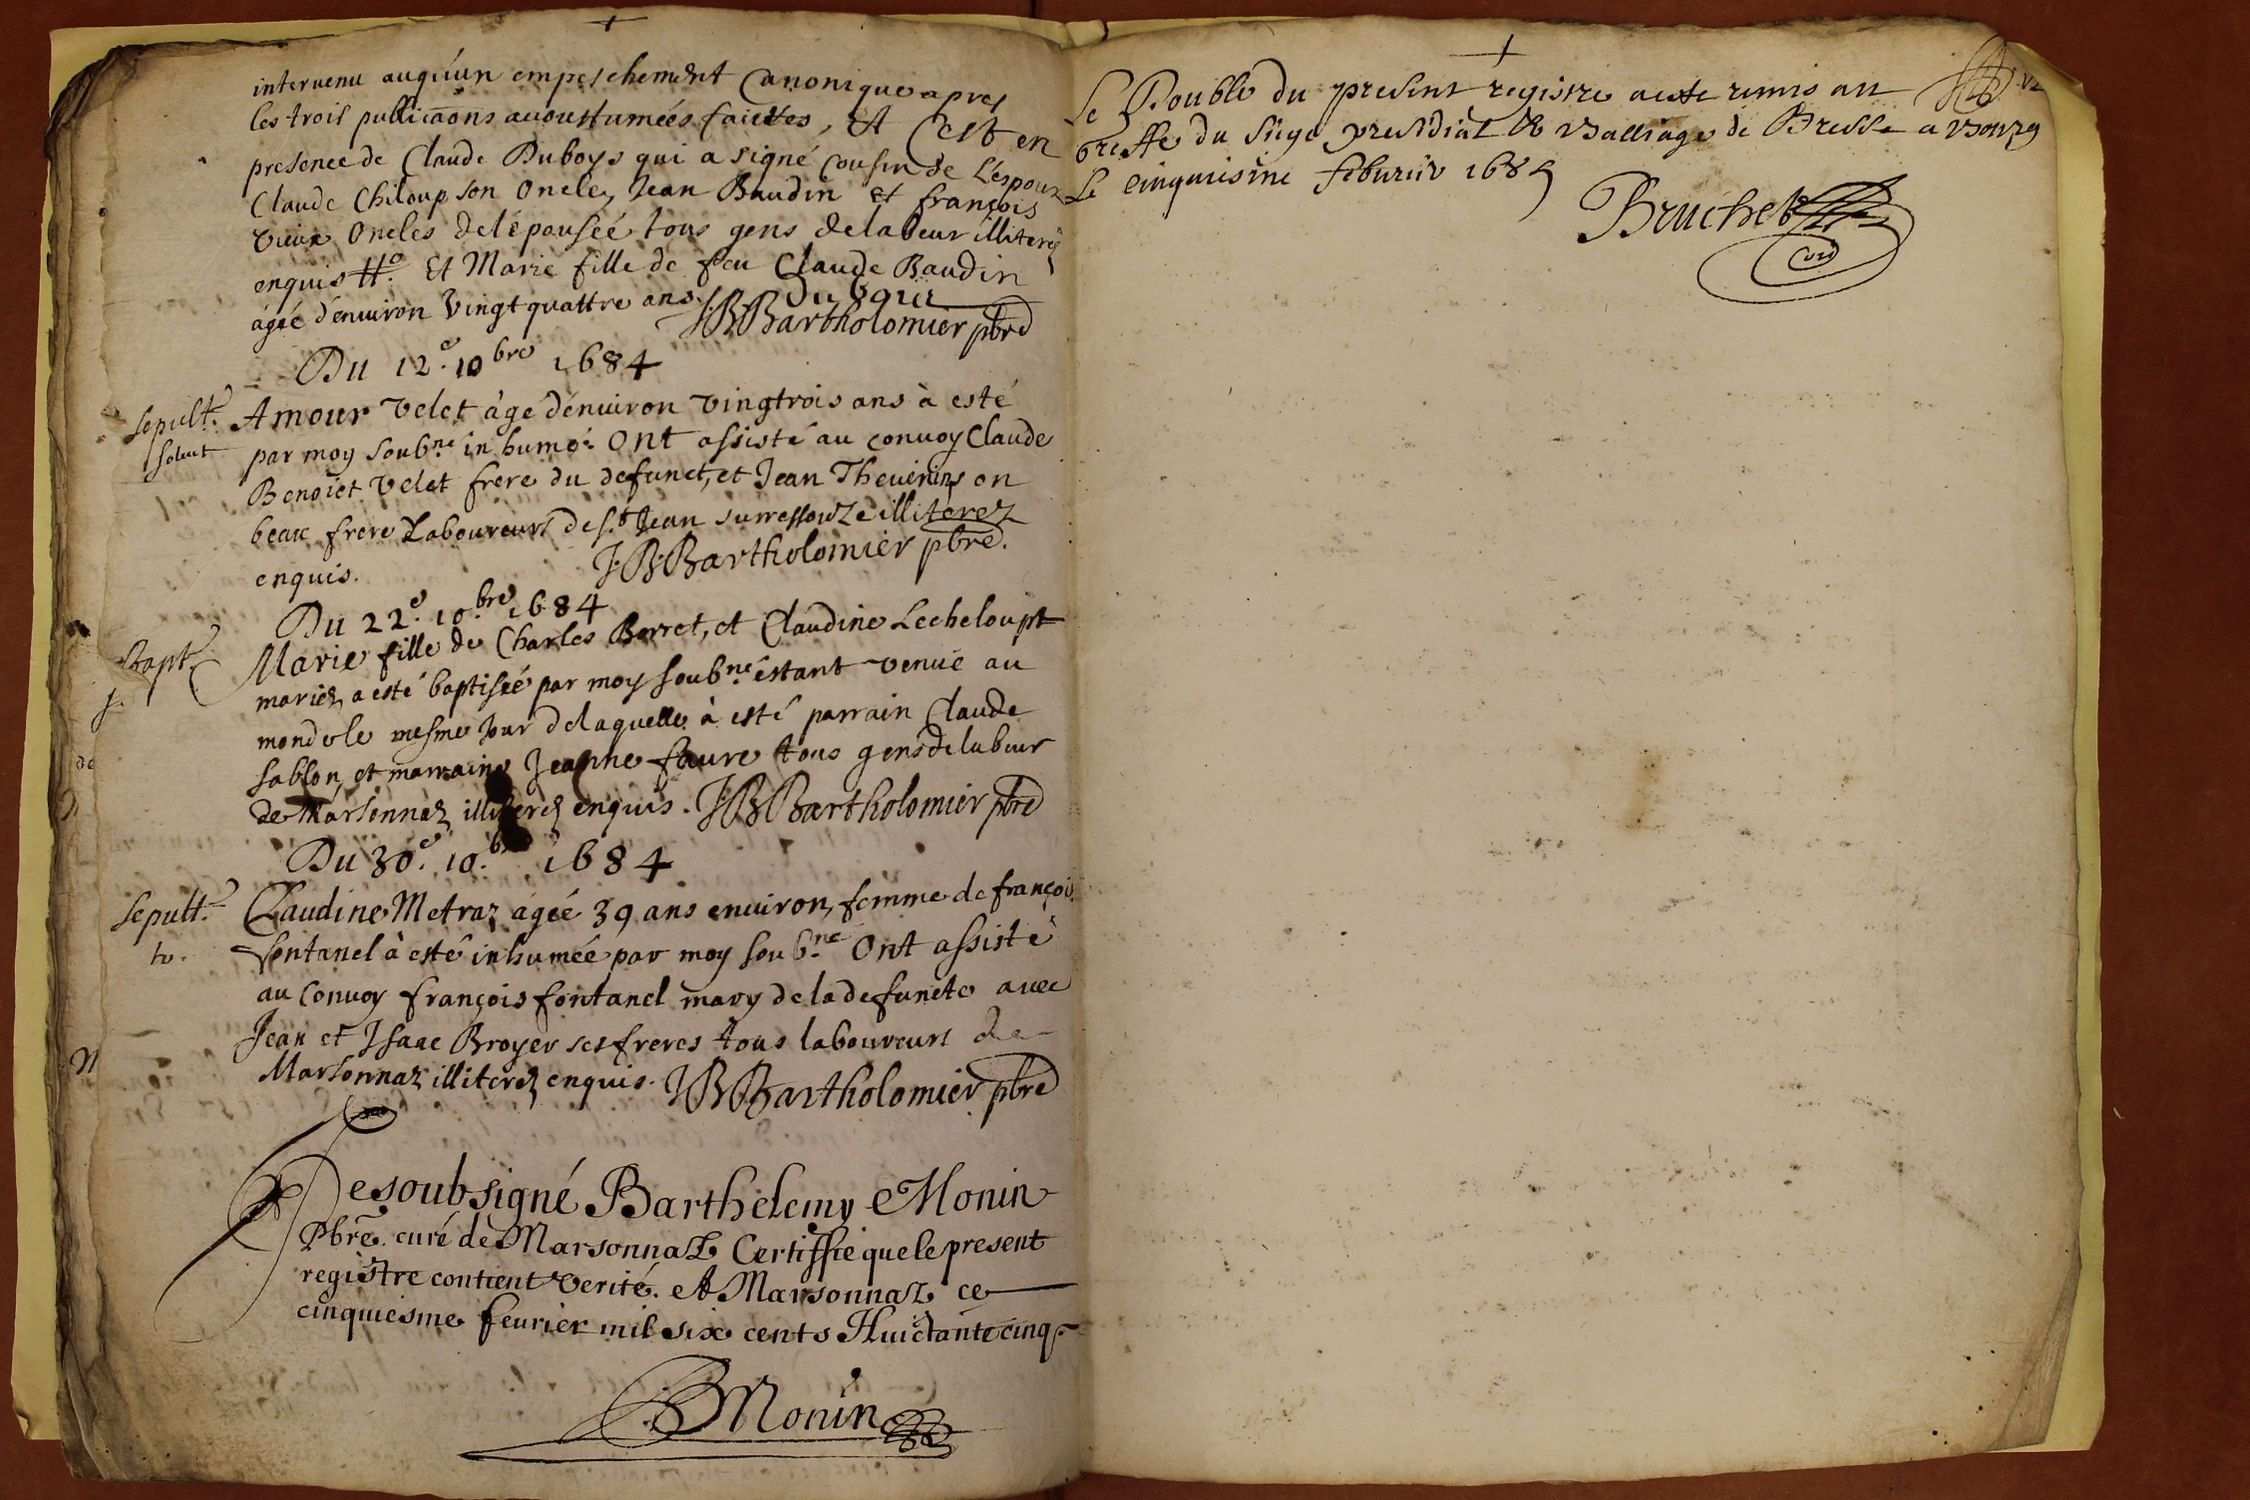 intervenu auqu'un empeschement Canonique apres
les trois publicaõns accoustumées faictes, Et C'est en
presence de Claude Duboys qui a signé Cousin de L'espoux
Claude Chiloup son Oncle, Jean Baudin et françois
vieux Oncles de l'épousée tous gens de labeur illiterez
enquis #° Et Marie fille de feu Claude Baudin
ágée d'enuiron Vingt quattre ans. Du boys
J.B Bartholomier pbre
Du 12e. 10bre 1684
Sepultr. Amour Velet àgé d'enuiron vingtrois ans à esté
soluit par moy soubne. inhumé. Ont assisté au conuoy Claude
Benoict Velet frere du defunct, et Jean Theuenin son
beau frere Laboureurs de St Jean surressouze illiterez
enquis. J.B. Bartholomier pbre.
Du 22e. 10.bre 1684
Bapt. Marie fille de Charles Berret, et Claudine Lecheloupt
mariez, a esté baptisée par moy soubne. éstant venue au
monde le mesme Jour de laquelle à esté parrain Claude
Sablon, et marraine Jeanne faure tous gens de labeur
de Marsonnaz illiterez enquis. J.B Bartholomier pbre
Du 30e. 10.b 1684
Sepultr. Claudine Metraz ágée 39 ans enuiron, femme de françois
fontanel à esté inhumée par moy soubne. Ont assisté
au Conuoy françois fontanel mary de la defuncte auec
Jean et Isaac Broyer ses freres tous laboureurs de
Marsonnaz illiterez enquis. J B Bartholomier pbre
Je soubsigné Barthelemy Monin
Pbre. curé de Marsonnaz Certiffie que le present
registre contient Verité. A Marsonnaz ce
cinquiesme feurier mil six cents Huictante cinq.
BMonin
Le Double du present registre a esté remis au
Greffe du Siege presidial & Balliage de Bresse a Bourg
Le cinquiesme feburier 1685
Bruchet